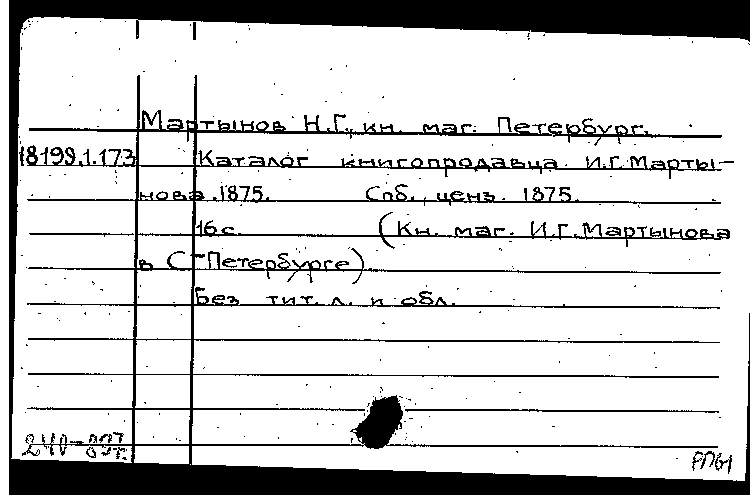 Мартынов Н.Г., кн. маг. Петербург.
18199.1.173 Каталог книгопродавца И.Г. Марты-
нова. 1875. Спб., ценз. 1875.
16 с. (Кн. маг. И.Г. Мартынова
в С-Петербурге)
Без тит. л. и обл.
РПБ1